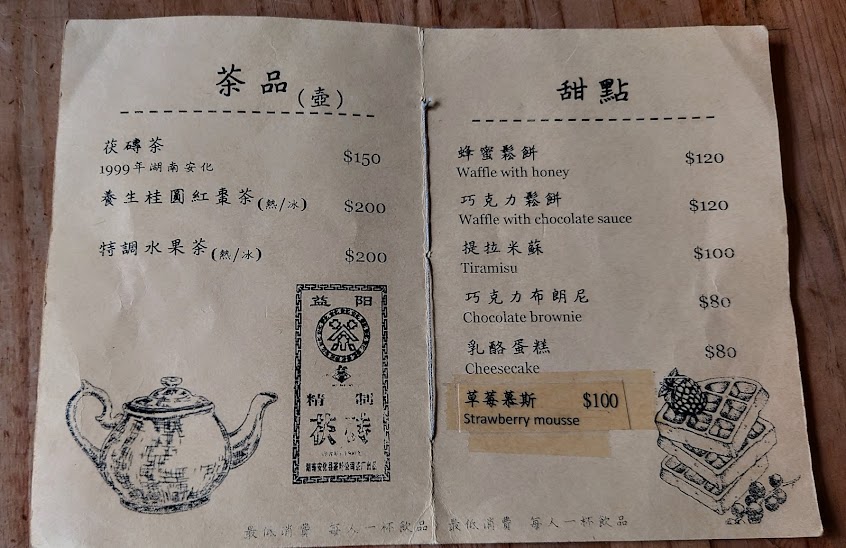 茶品(壺)
茯磚茶 $150
1999年湖南安化
養生桂圓紅棗茶(熱/冰) $200
特調水果茶(熱/冰) $200
益阳
精制
茯砖
最低消費 每人一杯飲品
甜點
蜂蜜鬆餅 $120
Waffle with honey
巧克力鬆餅 $120
Waffle with chocolate sauce
提拉米蘇 $100
Tiramisu
巧克力布朗尼 $80
Chocolate brownie
乳酪蛋糕 $80
Cheesecake
草莓慕斯 $100
Strawberry mousse
最低消費 每人一杯飲品